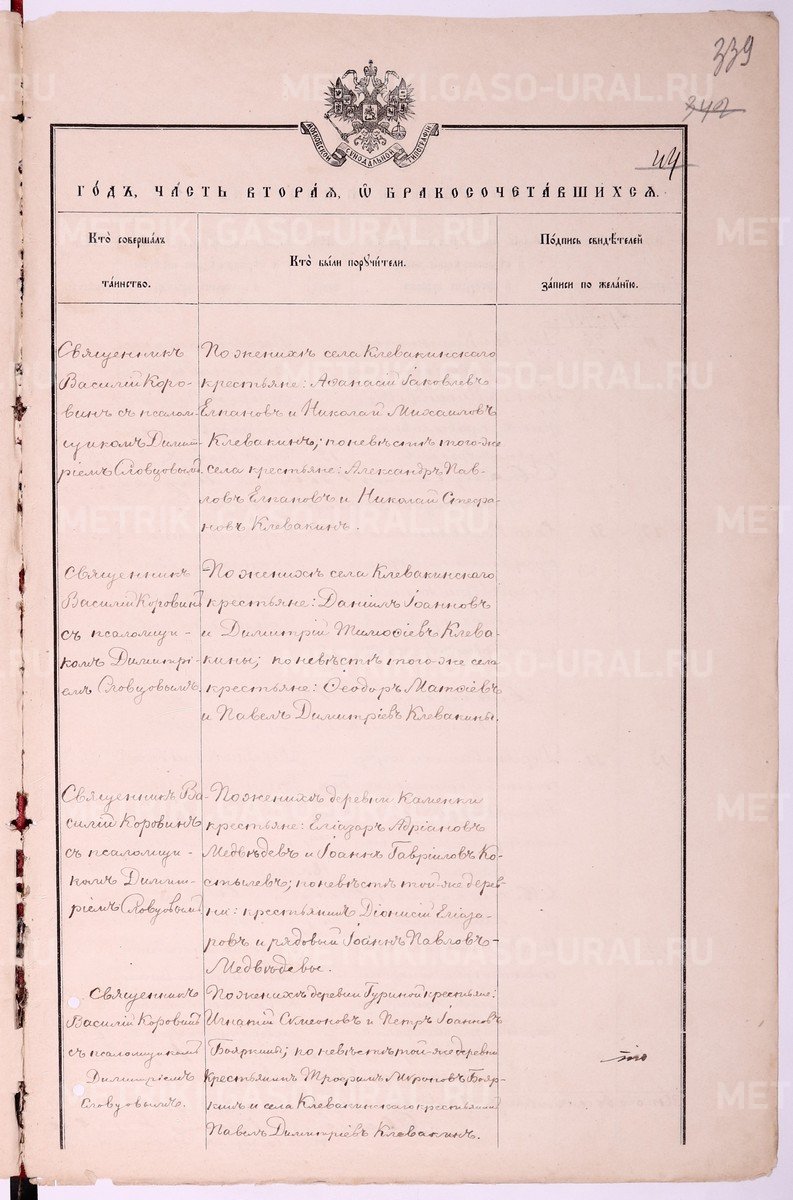 339
342
44
МОСКОВСКОЙ СѴНОДАЛЬНОЙ ТИПОГРАФІИ
ГО́ДЪ, ЧА́СТЬ ВТОРА́Я, Ѡ БРАКОСОЧЕТА́ВШИХСЯ.
Кто̀ совершáлъ
та́инство.
Кто̀ бы́ли порꙋчи́тели.
По́дпись свидѣ́телей
за́писи по жела́нію.
Священникъ
Василій Коро-
винъ съ псалом-
щикомъ Димит-
ріемъ Словцовымъ
По женихѣ села Клевакинскаго
крестьяне: Аѳанасій Іаковлевъ
Елпановъ и Николай Михаиловъ
Клевакинъ; по невѣстѣ того-же
села крестьяне: Александръ Пав-
ловъ Елпановъ и Николай Стефа-
новъ Клевакинъ.
Священникъ
Василій Коровинъ
съ псаломщи-
комъ Димитрі-
емъ Словцовымъ.
По женихѣ села Клевакинскаго
крестьяне: Даніилъ Іоанновъ
и Димитрій Тимоѳіевъ Клева-
кины; по невѣстѣ того-же села
крестьяне: Ѳеодоръ Матѳіевъ
и Павелъ Димитріевъ Клевакины.
Священникъ Ва-
силій Коровинъ
съ псаломщи-
комъ Димит-
ріемъ Словцовымъ
По женихѣ деревни Каменки
крестьяне: Еліазаръ Адріановъ
Медвѣдевъ и Іоаннъ Гавріиловъ Ко-
стылевъ; по невѣстѣ той-же дерев-
ни: крестьянинъ Діонисій Еліаза-
ровъ и рядовый Іоаннъ Павловъ
Медвѣдевы.
Священникъ
Василій Коровинъ
съ псаломщикомъ
Димитріемъ
Словцовымъ.
По женихѣ деревни Гуриной крестьяне:
Игнатій Сѵмеоновъ и Петръ Іоанновъ
Бояркины; по невѣстѣ той-же деревни
крестьянинъ Трофимъ Мироновъ Бояр-
кинъ и села Клевакинскаго крестьянинъ
Павелъ Димитріевъ Клевакинъ.
METRIKI.GASO-URAL.RU